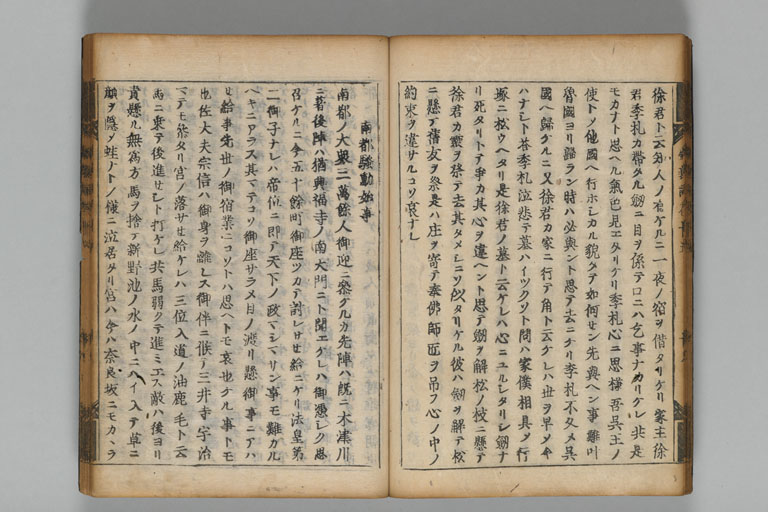 徐君ト云知人ノ有ケルニ一夜ノ宿ヲ借タリケリ家主徐
君季札カ帶タル劔ニ目ヲ係テロニハ乞事ナカリケレ共是
モカナト思ヘル氣色見エタリケリ季札心ニ思樣吾呉王ノ
使トメ他國ヘ行ホレカル貌タテ如何セン先與ヘン事難叶
魯國ヨリ歸ラン時ハ必與ント思テ去ニケリ李札不久メ呉
國ヘ歸ケルニ又徐君カ家ニ行テ角ト云ケレハ世ヲ早メ今
ハナレト答季札泣悲テ墓ハイツクソト問ハ家僕相具メ行
塚ニ松ウヘタリ是徐君ノ墓ト云ケレハ心ニユルレタリレ劔ナ
リ死タリトテ爭カ其心ヲ違ヘント思テ劔ヲ解松ノ枝ニ懸テ
徐君カ靈ヲ祭テ去其タメレニソ似タリケル彼ハ劔ヲ解テ松
ニ懸テ舊友ヲ祭是ハ庄ヲ寄テ奉佛師匠ヲ吊フ心ノ中ノ
約束ヲ違サルコソ哀ナレ
南都騷動始事
南都ノ大衆三萬餘人御迎ニ參ケルカ先陣ハ既ニ木津川
ニ著後陣ハ猶興福寺ノ南大門ニト聞エケレハ御憑レク思
召ケルニ今五十餘町御座ツカテ討レサセ給ニケリ法皇第
二御子ナレハ帝位ニ卽テ天下ノ政マシマサン事モ難カル
ヘキニアラス其マテコソ御座サラメ目ノ渡リ懸御事ニアハ
せ給事先世ノ御宿業ニコソトハ思ヘトモ哀也ケル事トモ
也佐大夫宗信ハ御身ヲ離レス御伴ニ候テ三井寺宇治
マテモ參タリ宮ノ落サせ給ケレハ三位入道ノ油鹿毛ト云
馬ニ乘テ後進せレト打ケレ共馬弱クテ進ミエス敵ハ後ヨリ
責懸ル無爲方馬ヲ捨テ新野池ノ水ノ中ニハイ入テ草ニ
顔ヲ隱メ蛙ノトノ樣ニ泣居タリ宮ハ今ハ奈良坂ニモカヽラ